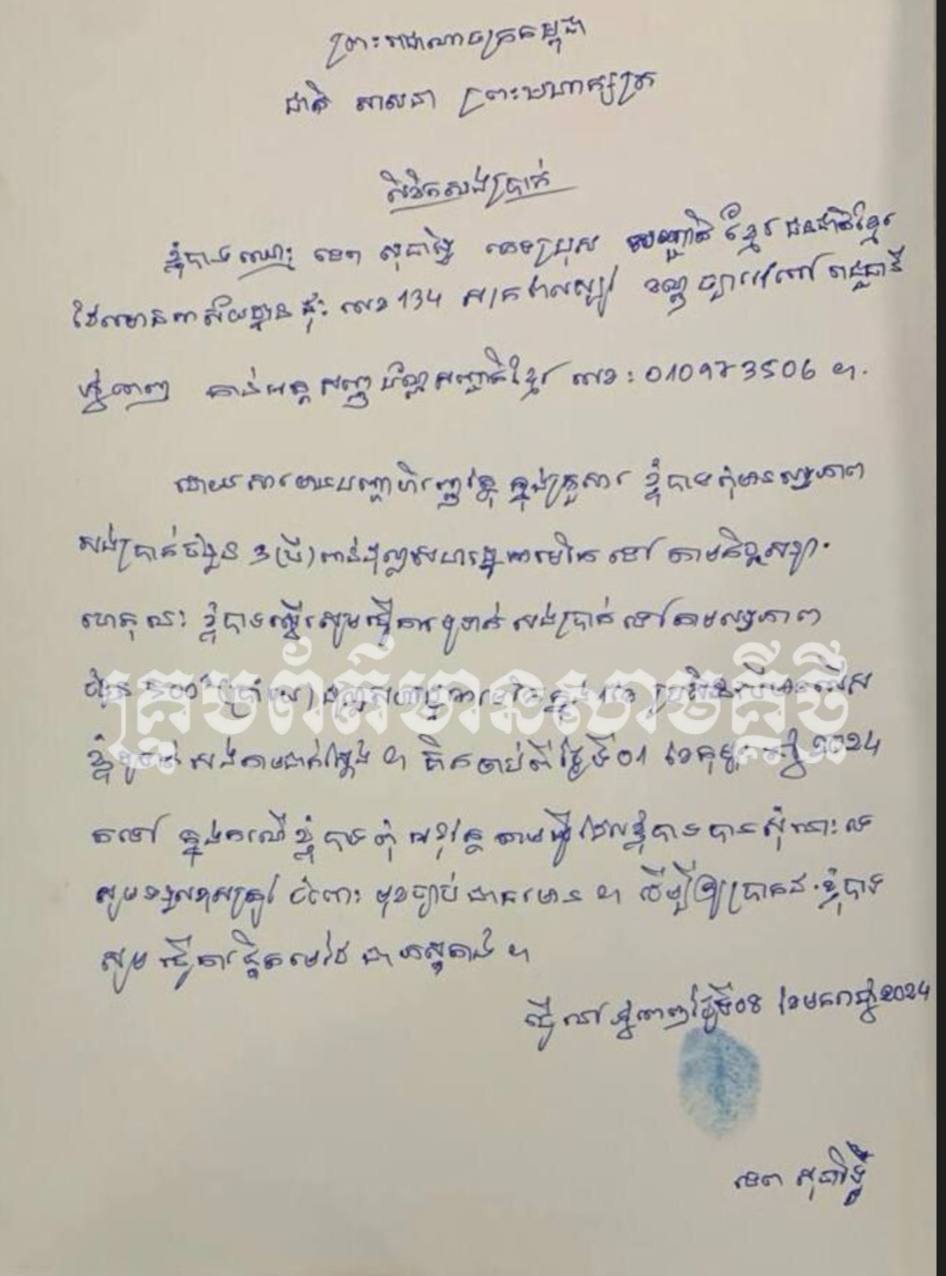 ព្រះរាជាណាចក្រកម្ពុជា
ជាតិ សាសនា ព្រះមហាក្សត្រ
លិខិតសងប្រាក់
ខ្ញុំបាទឈ្មោះ ទេព សុភារិទ្ធិ ភេទប្រុស សញ្ជាតិ ខ្មែរ ជនជាតិខ្មែរ
ដែលមានអាស័យដ្ឋាន ផ្ទះ លេខ 134 ខណ្ឌ ច្បារអំពៅ រាជធានី
ភ្នំពេញ កាន់អត្តសញ្ញប័ណ្ណសញ្ជាតិខ្មែរ លេខ: 010973506 ។
ដោយសារមានបញ្ហាហិរញ្ញវត្ថុ ក្នុងគ្រួសារ ខ្ញុំបាទពុំមានលទ្ធភាព
សងប្រាក់ចំនួន 3(បី)ពាន់ដុល្លាសហរដ្ឋអាមេរិក ទៅ តាមកិច្ចសន្យា.
ហេតុនេះ ខ្ញុំបាទស្នើសូមធ្វើការទូទាត់សងប្រាក់ទៅតាមលទ្ធភាព
គ្រួបព័ត៌មានសាមគ្គីថ្មី
ខ្ញុំទូទាត់សងតាមជាក់ស្តែង ។ គិតចាប់ពីថ្ងៃទី01 ខែកុម្ភះឆ្នាំ 2024
តទៅ ក្នុងករណីខ្ញុំបាទពុំ អនុវត្ត តាមអ្វីដែលខ្ញុំបាទបាន ទេ
សូមទទួលខុសត្រូវ ចំពោះ មុខច្បាប់ជាធរមាន ។ ដើម្បីឲ្យប្រាកដ.ខ្ញុំបាទ
សូម ផ្តិតមេដៃ ជាភស្តុតាង ។
ធ្វើនៅភ្នំពេញថ្ងៃទី08 ខែមករាឆ្នាំ2024
ទេព សុភារិទ្ធិ